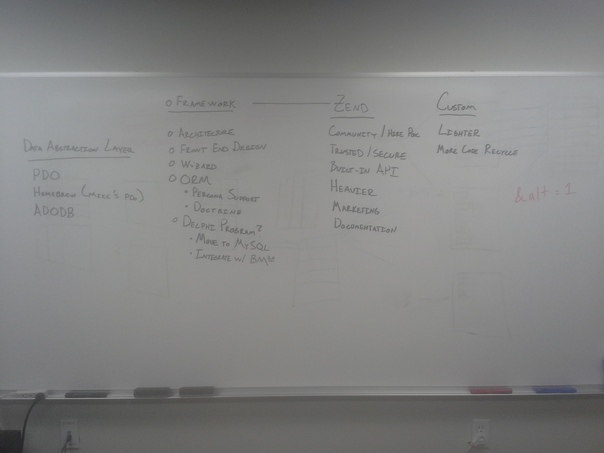 Data Abstraction Layer
PDO
Homebrew (Mike's PDO)
ADODB
o Framework
o Architecture
o Front End Design
o Wizard
o ORM
• Percona Support
• Doctrine
o Delphi Program?
• Move to MySQL
• Integrate w/
Zend
Community / Hire
Trusted / Secure
Built-in API
Heavier
Marketing
Documentation
Custom
Lighter
More Code Recycle
&alt=1